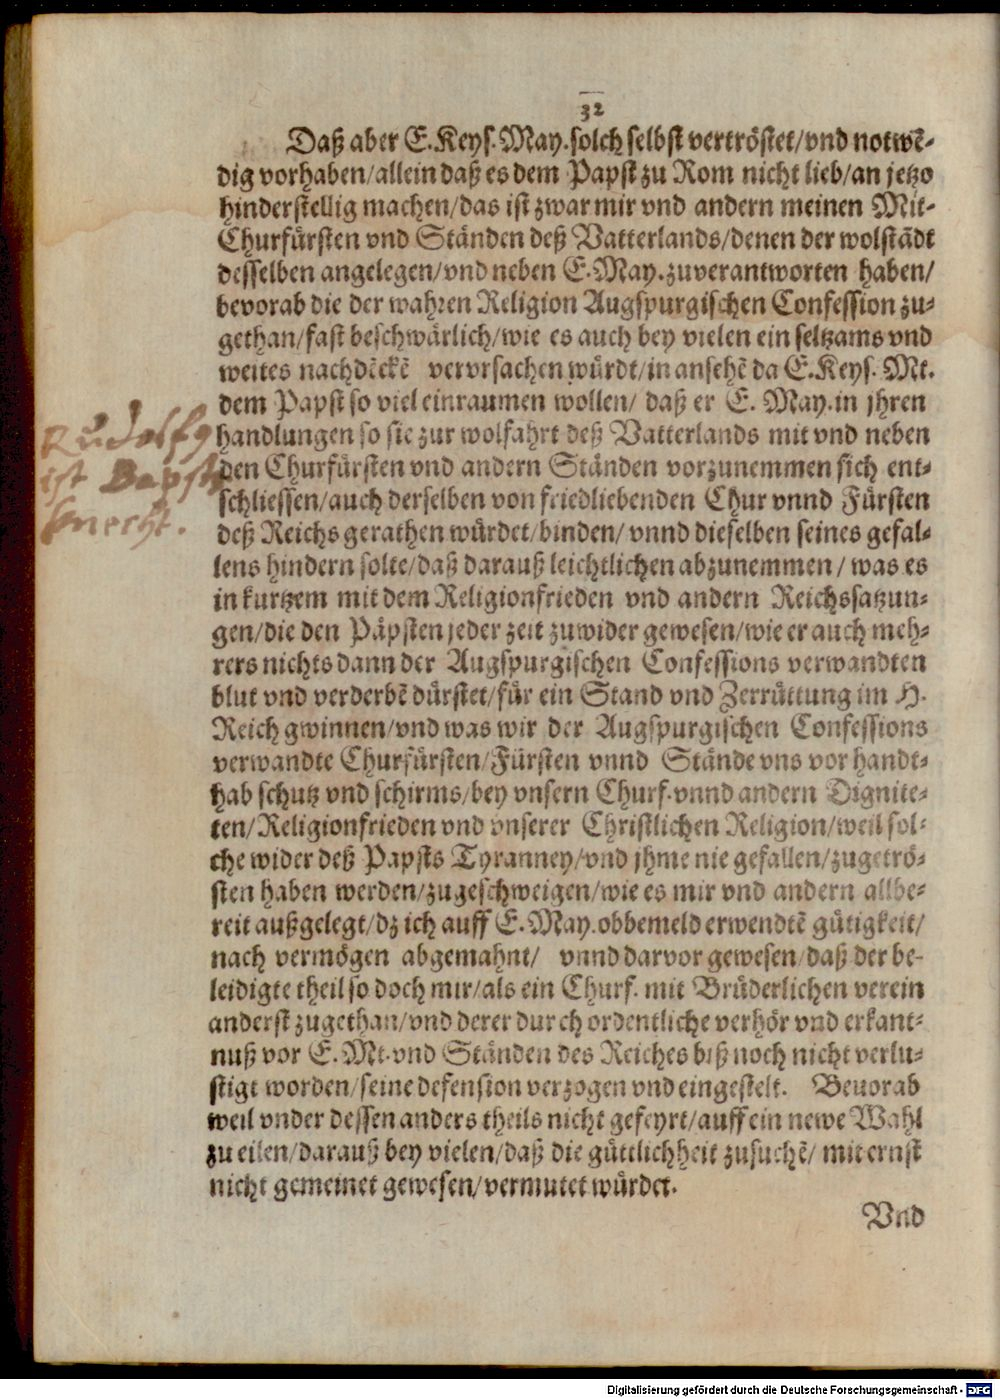 32
Daß aber E. Keys. May. solch selbst vertröstet/ vnd notwẽ-
dig vorhaben/ allein daß es dem Papst zu Rom nicht lieb/ an jetzo
hinderstellig machen/ das ist zwar mir vnd andern meinen Mit-
Churfürsten vnd Ständen deß Vatterlands/ denen der wolstãdt
desselben angelegen/ vnd neben E. May. zuverantworten haben/
bevorab die der wahren Religion Augspurgischen Confession zu-
gethan/ fast beschwärlich/ wie es auch bey vielen ein seltzams vnd
weites nachdẽckẽ vervrsachen würdt/ in ansehẽ da E. Keys. Mt.
dem Papst so viel einraumen wollen/ daß er E. May. in jhren
handlungen so sie zur wolfahrt deß Vatterlands mit vnd neben
den Churfürsten vnd andern Ständen vorzunemmen sich ent-
schliessen/ auch derselben von friedliebenden Chur vnnd Fürsten
deß Reichs gerathen würdet/ binden/ vnnd dieselben seines gefal-
lens hindern solte/ daß darauß leichtlichen abzunemmen/ was es
in kurtzem mit dem Religionfrieden vnd andern Reichssatzun-
gen/ die den Päpsten jeder zeit zuwider gewesen/ wie er auch meh-
rers nichts dann der Augspurgischen Confessions verwandten
blut vnd verderbẽ dürstet/ für ein Stand vnd Zerrüttung im H.
Reich gwinnen/ vnd was wir der Augspurgischen Confessions
verwandte Churfürsten/ Fürsten vnnd Stände vns vor handt-
hab schutz vnd schirms/ bey vnsern Churf. vnnd andern Dignite-
ten/ Religionfrieden vnd vnserer Christlichen Religion/ weil sol-
che wider deß Papsts Tyranney/ vnd jhme nie gefallen/ zugetrö-
sten haben werden/ zugeschweigen/ wie es mir vnd andern allbe-
reit außgelegt/ dz ich auff E. May. obbemeld erwendtẽ gütigkeit/
nach vermögen abgemahnt/ vnnd darvor gewesen/ daß der be-
leidigte theil so doch mir/ als ein Churf. mit Brüderlichen verein
anderst zugethan/ vnd derer durch ordentliche verhör vnd erkant-
nuß vor E. Mt. vnd Ständen des Reiches biß noch nicht verlu-
stigt worden/ seine defension verzogen vnd eingestelt. Beuorab
weil vnder dessen anders theils nicht gefeyrt/ auff ein newe Wahl
zu eilen/ darauß bey vielen/ daß die güttlichheit zusuchẽ/ mit ernst
nicht gemeinet gewesen/ vermutet würdet.
Vnd
Rudolf9
ist Bapsts
knecht.
Digitalisierung gefördert durch die Deutsche Forschungsgemeinschaft - DFG